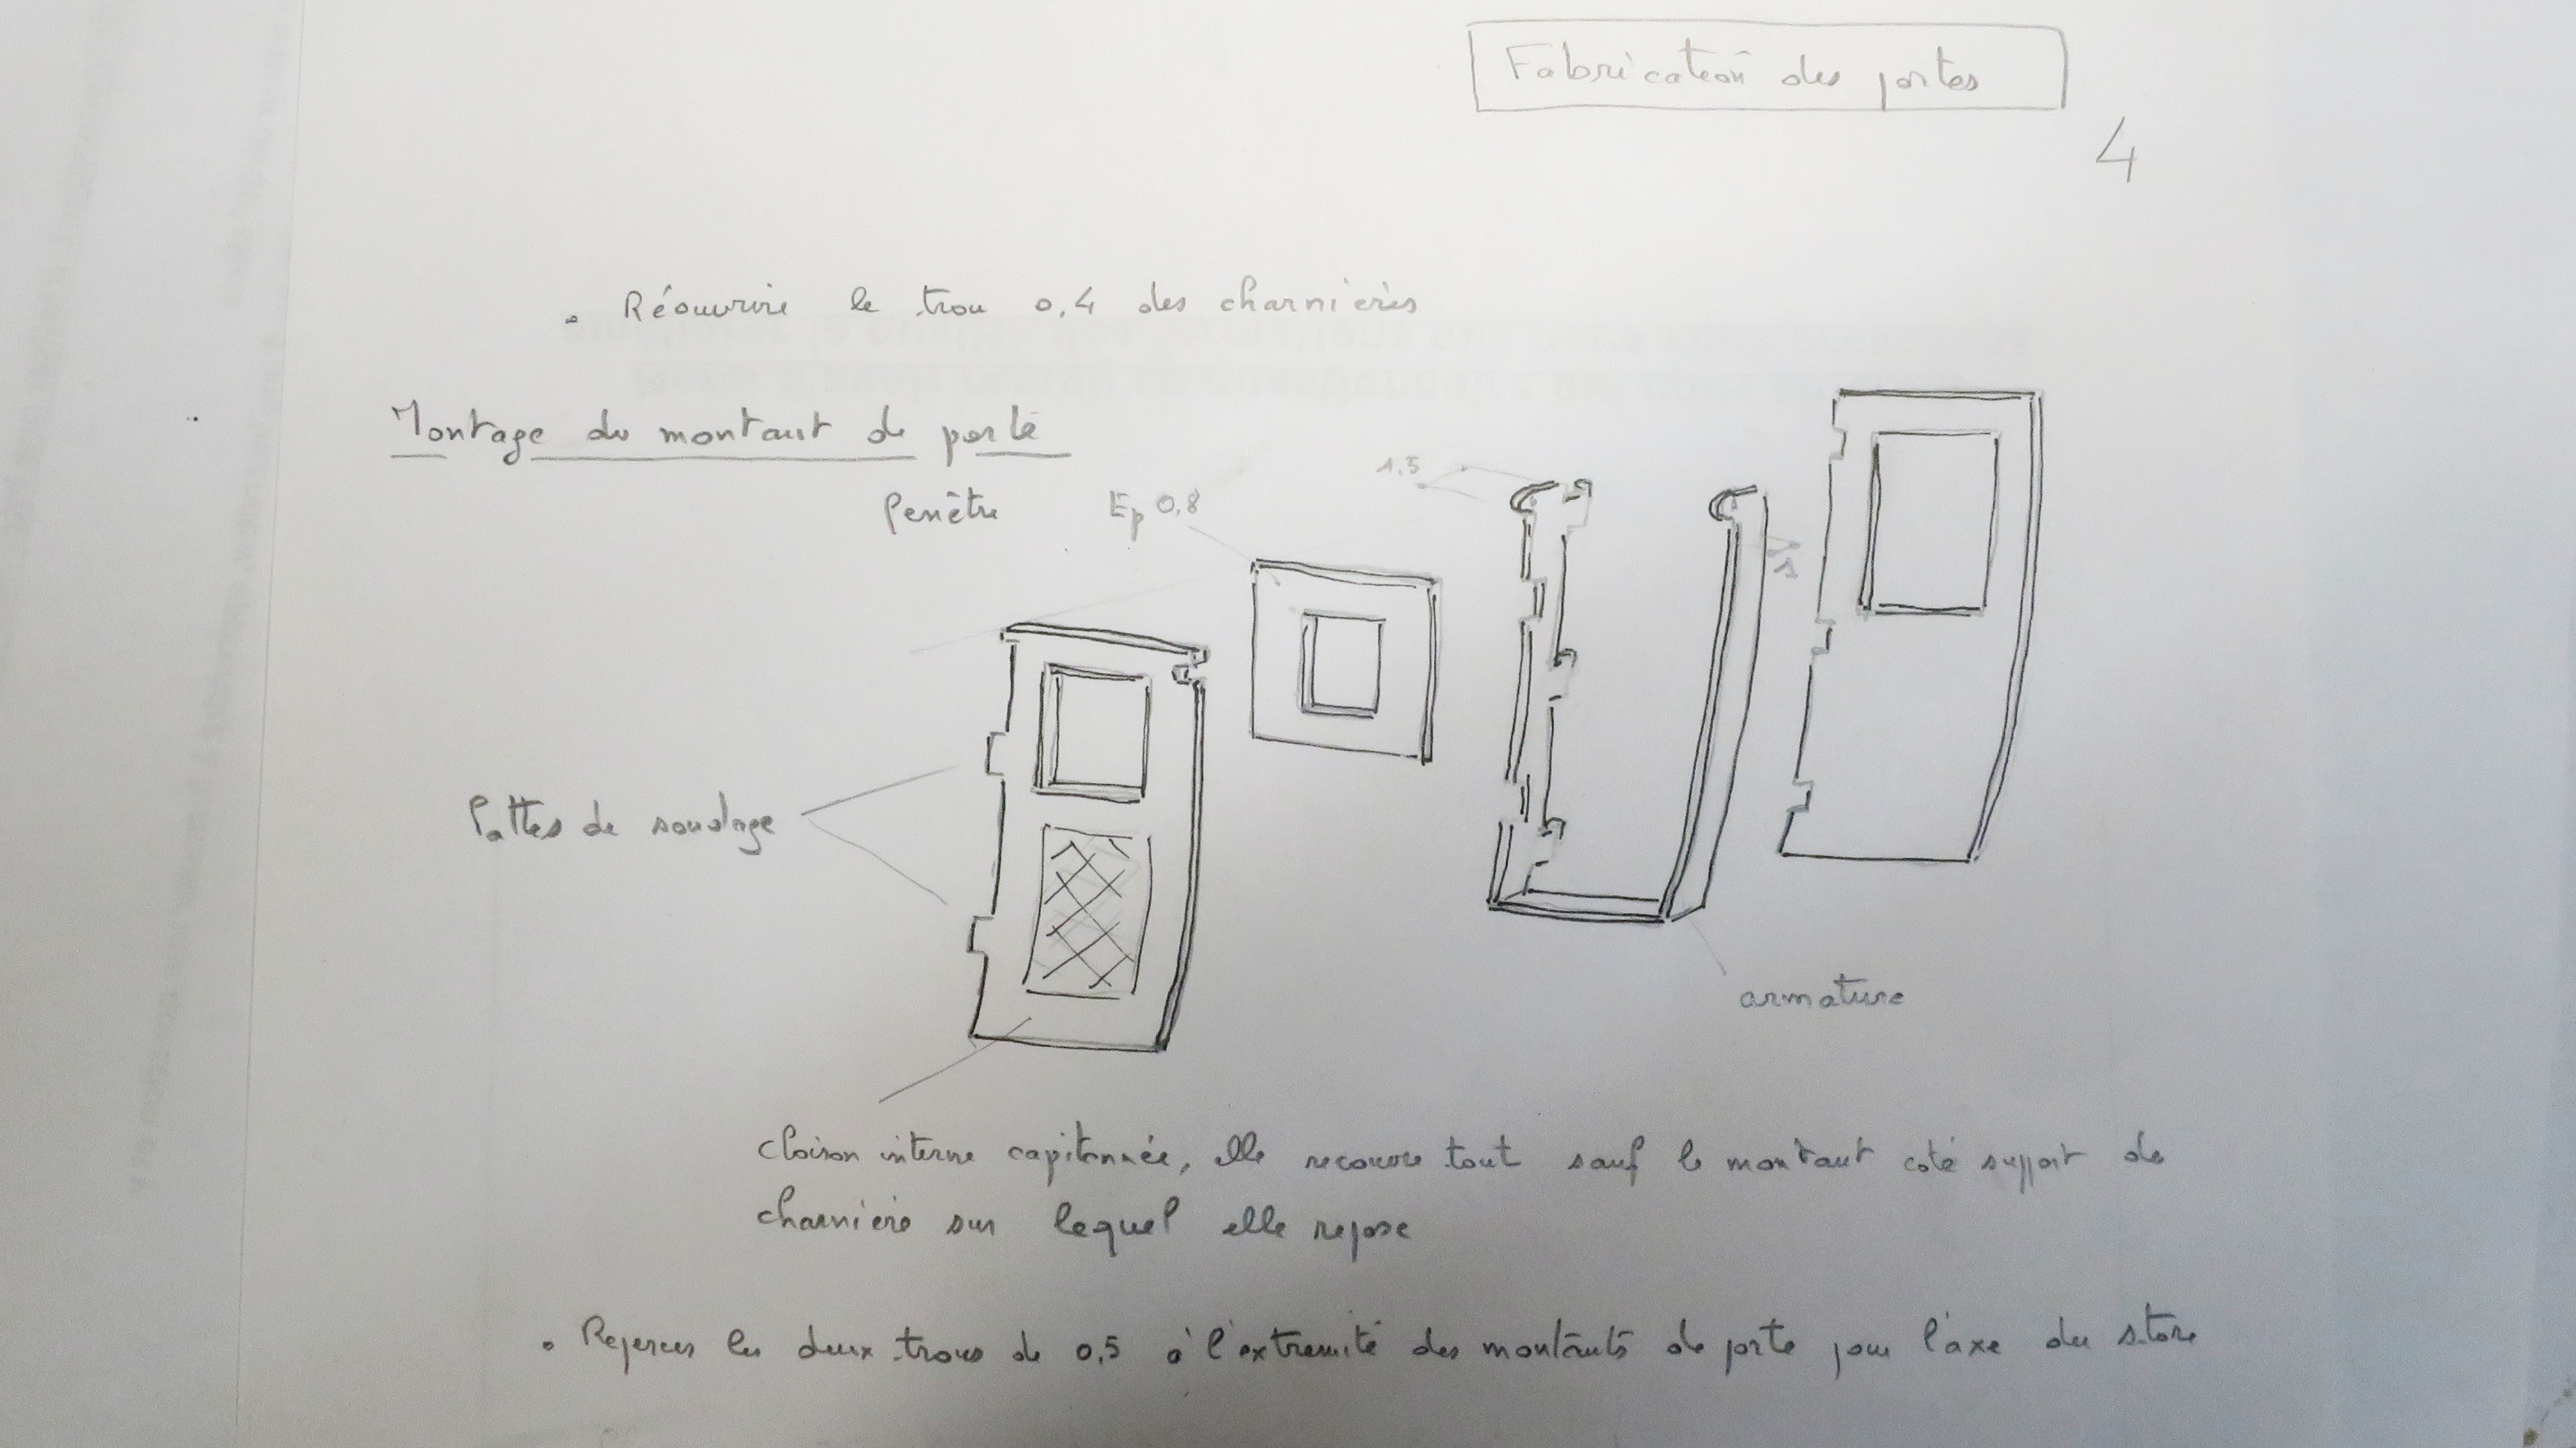 Fabrication des portes
4
. Réouvrir le trou 0,4 des charnières
Montage du montant de porte
fenêtre
Ep 0,8
1.5
1
Pattes de soudage
armature
cloison interne capitonnée, elle recouvre tout sauf le montant coté support de
charnière sur lequel elle repose
. Repercer les deux trous de 0,5 à l'extremité des montants de porte pour l'axe du store